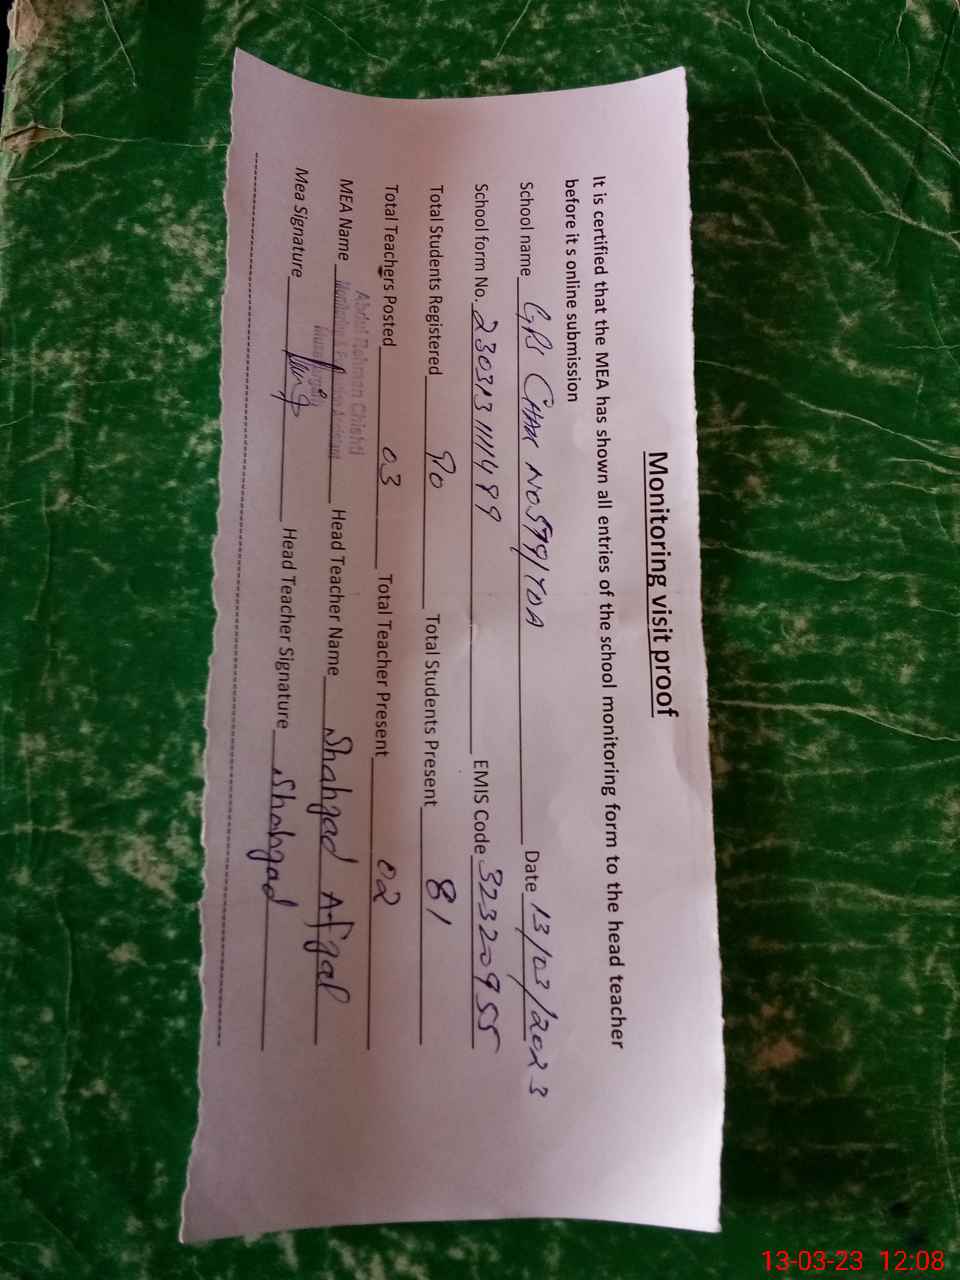 Monitoring visit proof
It is certified that the MEA has shown all entries of the school monitoring form to the head teacher
before it s online submission
School name Date 13/03/2023
School form No. EMIS Code 32320955
Total Students Registered 90 Total Students Present 81
Total Teachers Posted 03 Total Teacher Present 02
Abdul Rehman Chishti
MEA Name Head Teacher Name Shahzad Afzal
Monitoring & Evaluation Assistant
Mea Signature Head Teacher Signature Shahzad
13-03-23 12:08